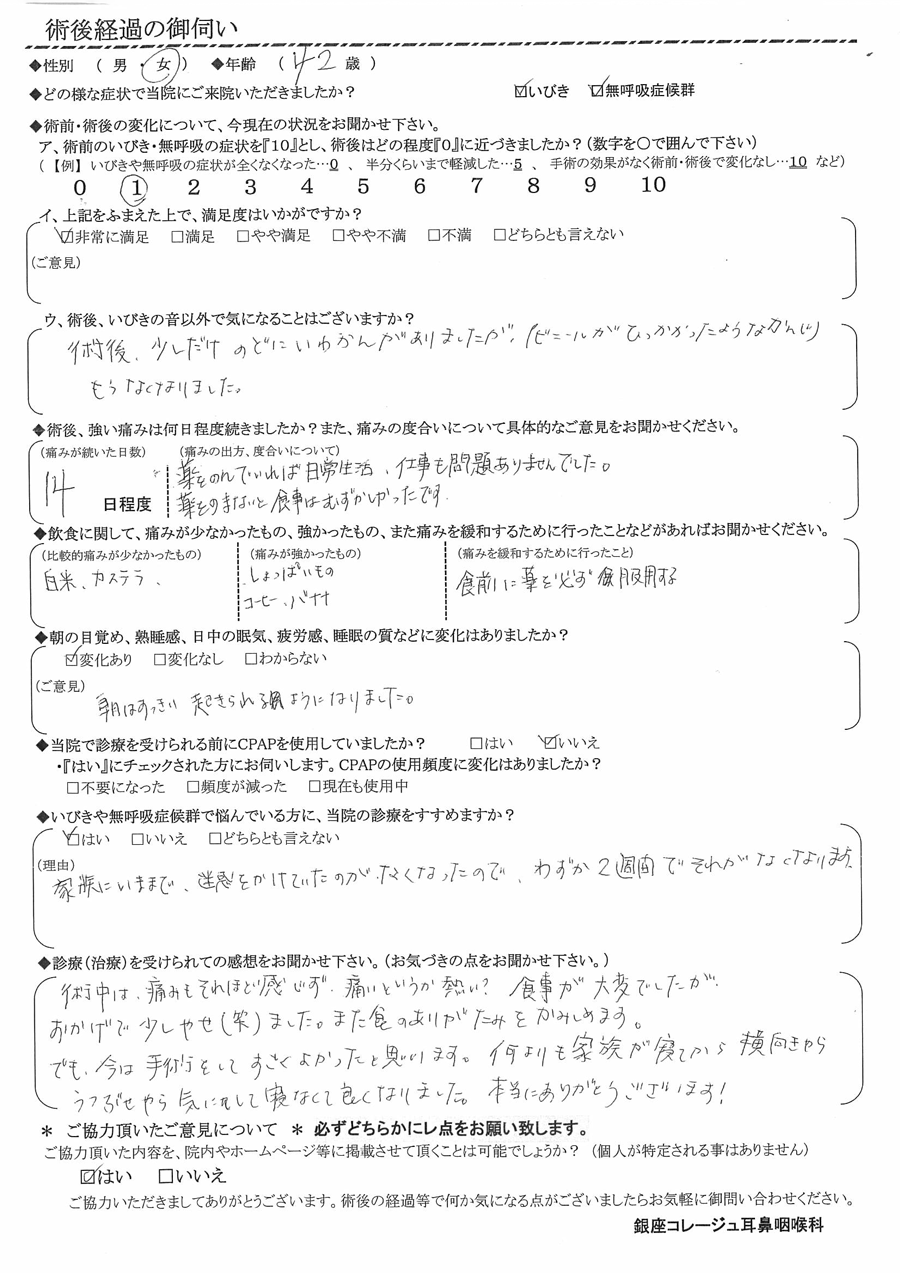 術後経過の御伺い
◆性別 ( 男 ・ 女 ) ◆年齢 ( 42 歳 )
◆どの様な症状で当院にご来院いただきましたか? ☑いびき ☑無呼吸症候群
◆術前・術後の変化について、今現在の状況をお聞かせ下さい。
ア、術前のいびき・無呼吸の症状を『10』とし、術後はどの程度『0』に近づきましたか?(数字を○で囲んで下さい)
(【例】いびきや無呼吸の症状が全くなくなった…0 、 半分くらいまで軽減した…5 、 手術の効果がなく術前・術後で変化なし…10 など)
0 1 2 3 4 5 6 7 8 9 10
イ、上記をふまえた上で、満足度はいかがですか?
☑非常に満足 □満足 □やや満足 □やや不満 □不満 □どちらとも言えない
(ご意見)
ウ、術後、いびきの音以外で気になることはございますか?
術後、少しだけ のどにいわかんがありましたが、(ビニールがひっかかったようなかんじ)
もうなくなりました。
◆術後、強い痛みは何日程度続きましたか?また、痛みの度合いについて具体的なご意見をお聞かせください。
(痛みが続いた日数) (痛みの出方、度合いについて)
薬をのんでいれば日常生活、仕事も問題ありませんでした。
14 日程度 薬をのまないと食事はむずかしかったです.
◆飲食に関して、痛みが少なかったもの、強かったもの、また痛みを緩和するために行ったことなどがあればお聞かせください。
(比較的痛みが少なかったもの) (痛みが強かったもの) (痛みを緩和するために行ったこと)
白米、カステラ、 しょっぱいもの 食前に薬を必ず服用する
コーヒー、バナナ
◆朝の目覚め、熟睡感、日中の眠気、疲労感、睡眠の質などに変化はありましたか?
☑変化あり □変化なし □わからない
(ご意見)
朝はすっきり 起きられるようになりました。
◆当院で診療を受けられる前にCPAPを使用していましたか? □はい ☑いいえ
・『はい』にチェックされた方にお伺いします。CPAPの使用頻度に変化はありましたか?
□不要になった □頻度が減った □現在も使用中
◆いびきや無呼吸症候群で悩んでいる方に、当院の診療をすすめますか?
☑はい □いいえ □どちらとも言えない
(理由)
家族にいままで、迷惑をかけていたのがなくなったので、わずか2週間でそれがなくなります
◆診療(治療)を受けられての感想をお聞かせ下さい。(お気づきの点をお聞かせ下さい。)
術中は、痛みもそれほど感じず、痛いというか熱い? 食事が大変でしたが、
おかげで少しやせ(笑)ました。また食のありがたみをかみしめます。
でも、今は手術をしてすごくよかったと思います。何よりも家族が寝てから横向きやら
うつぶせやら気にして寝なくて良くなりました。本当にありがとうございます!
＊ ご協力頂いたご意見について ＊ 必ずどちらかにレ点をお願い致します。
ご協力頂いた内容を、院内やホームページ等に掲載させて頂くことは可能でしょうか? (個人が特定される事はありません)
☑はい □いいえ
ご協力いただきましてありがとうございます。術後の経過等で何か気になる点がございましたらお気軽に御問い合わせください。
銀座コレージュ耳鼻咽喉科